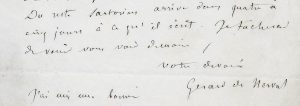 Du reste Sartorius arrive dans quatre à
cinq jours à ce qu'il écrit. Je tâcherai
de venir vous voir demain,
votre dévoué
Gérard de Nerval
J'ai mis une